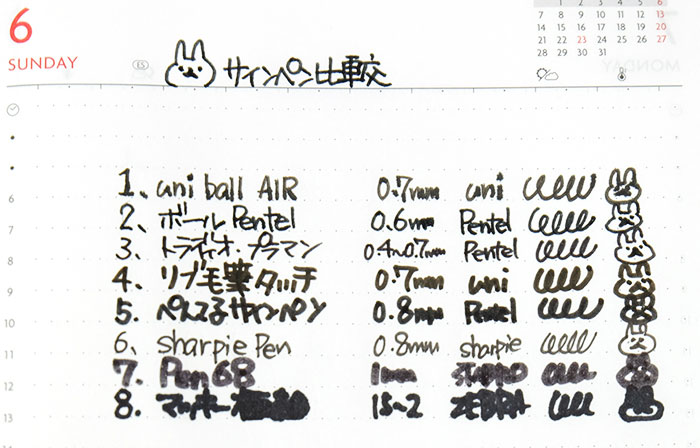 6
SUNDAY
1 2 3 4 5 6
7 8 9 10 11 12 13
14 15 16 17 18 19 20
21 22 23 24 25 26 27
28 29 30 31
サインペン比較
1、uni ball AIR 0.7mm uni
2、ボール Pentel 0.6mm Pentel
3、トラディオ・プラマン 0.4~0.7mm Pentel
4、リブ毛筆タッチ 0.7mm uni
5、ぺんてるサインペン 0.8mm Pentel
6、sharpie Pen 0.8mm sharpie
7、Pen68 1mm
8、マッキー 15~2 ZEBRA
6
7
8
9
10
11
12
13